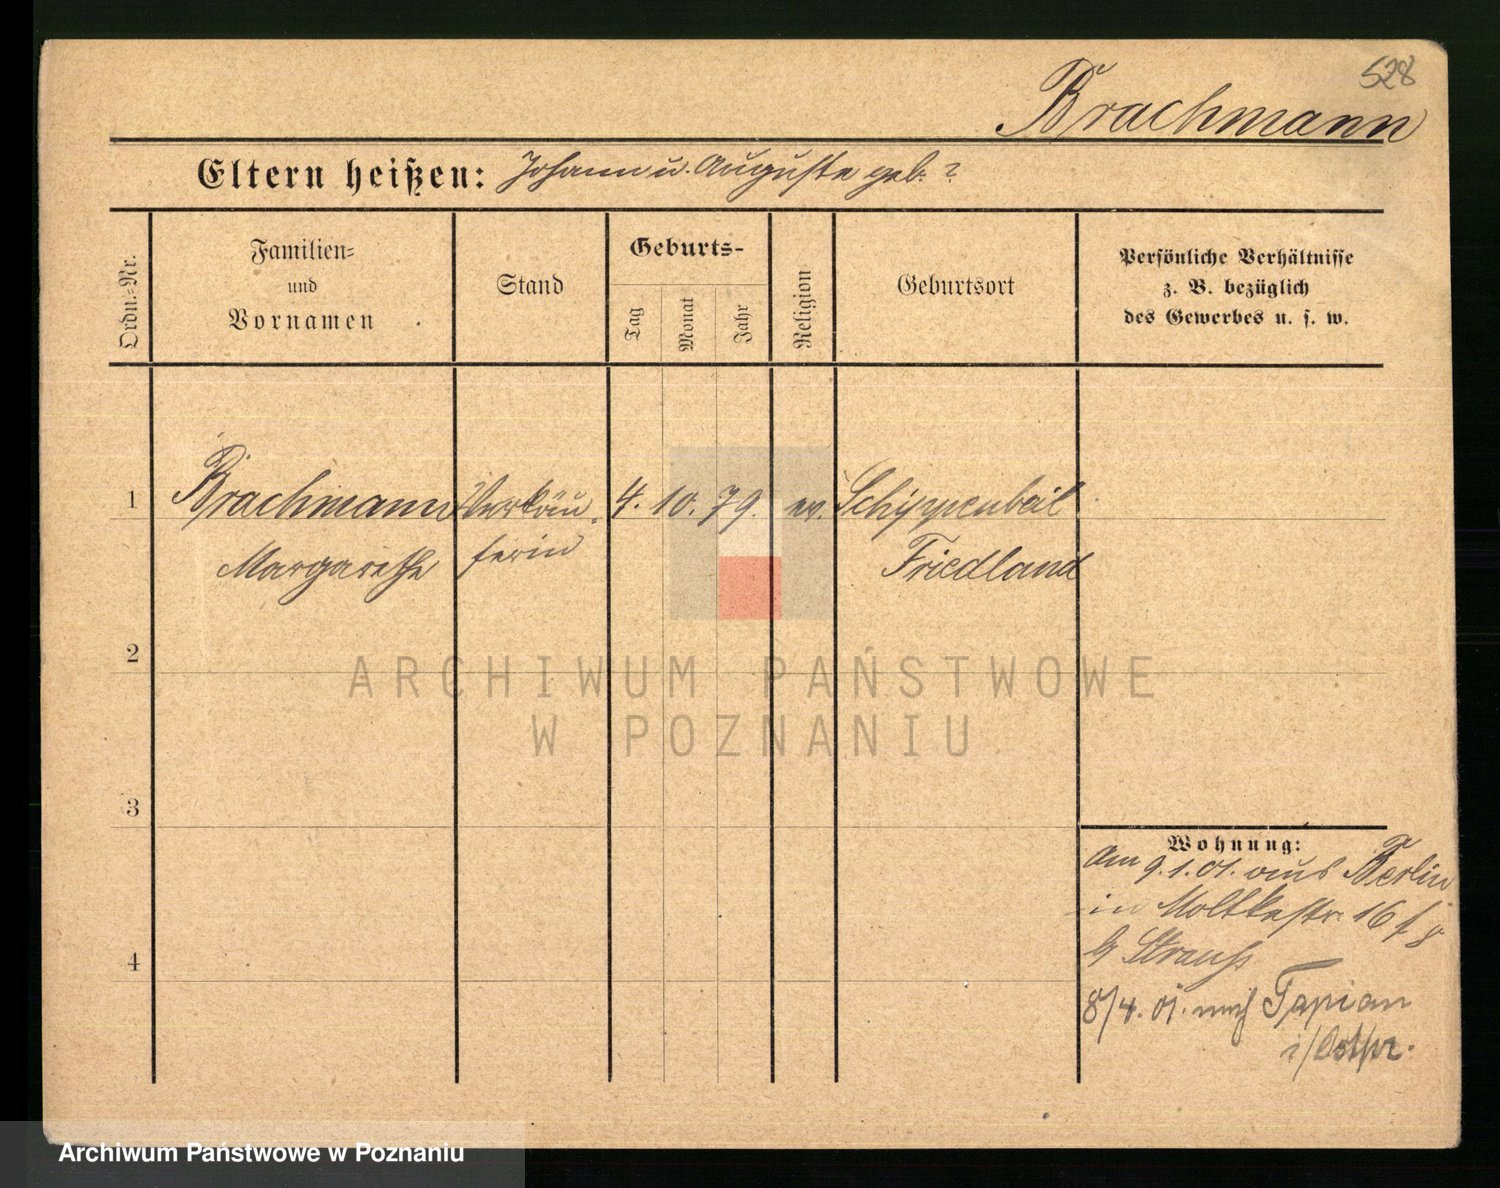 528
Brachmann
Eltern heißen: Johann u. Auguste geb. ?
Ordn.-Nr.
Familien-
und
Vornamen
Stand
Geburts-
Tag
Monat
Jahr
Religion
Geburtsort
Persönliche Verhältnisse
z. B. bezüglich
des Gewerbes u. s. w.
1 Brachmann Verkäu- 4. 10. 79. ev. Schippenbeil
Margarethe ferin Friedland
2
3
4
Wohnung:
Am 9.1.01. aus Berlin
in Moltkestr. 16
b/ Strauß
8/4.01. nach Tapiau
i/Ostpr.
ARCHIWUM PAŃSTWOWE
W POZNANIU
Archiwum Państwowe w Poznaniu